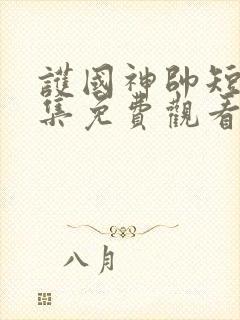 護國神帥短
集免費觀看
八月